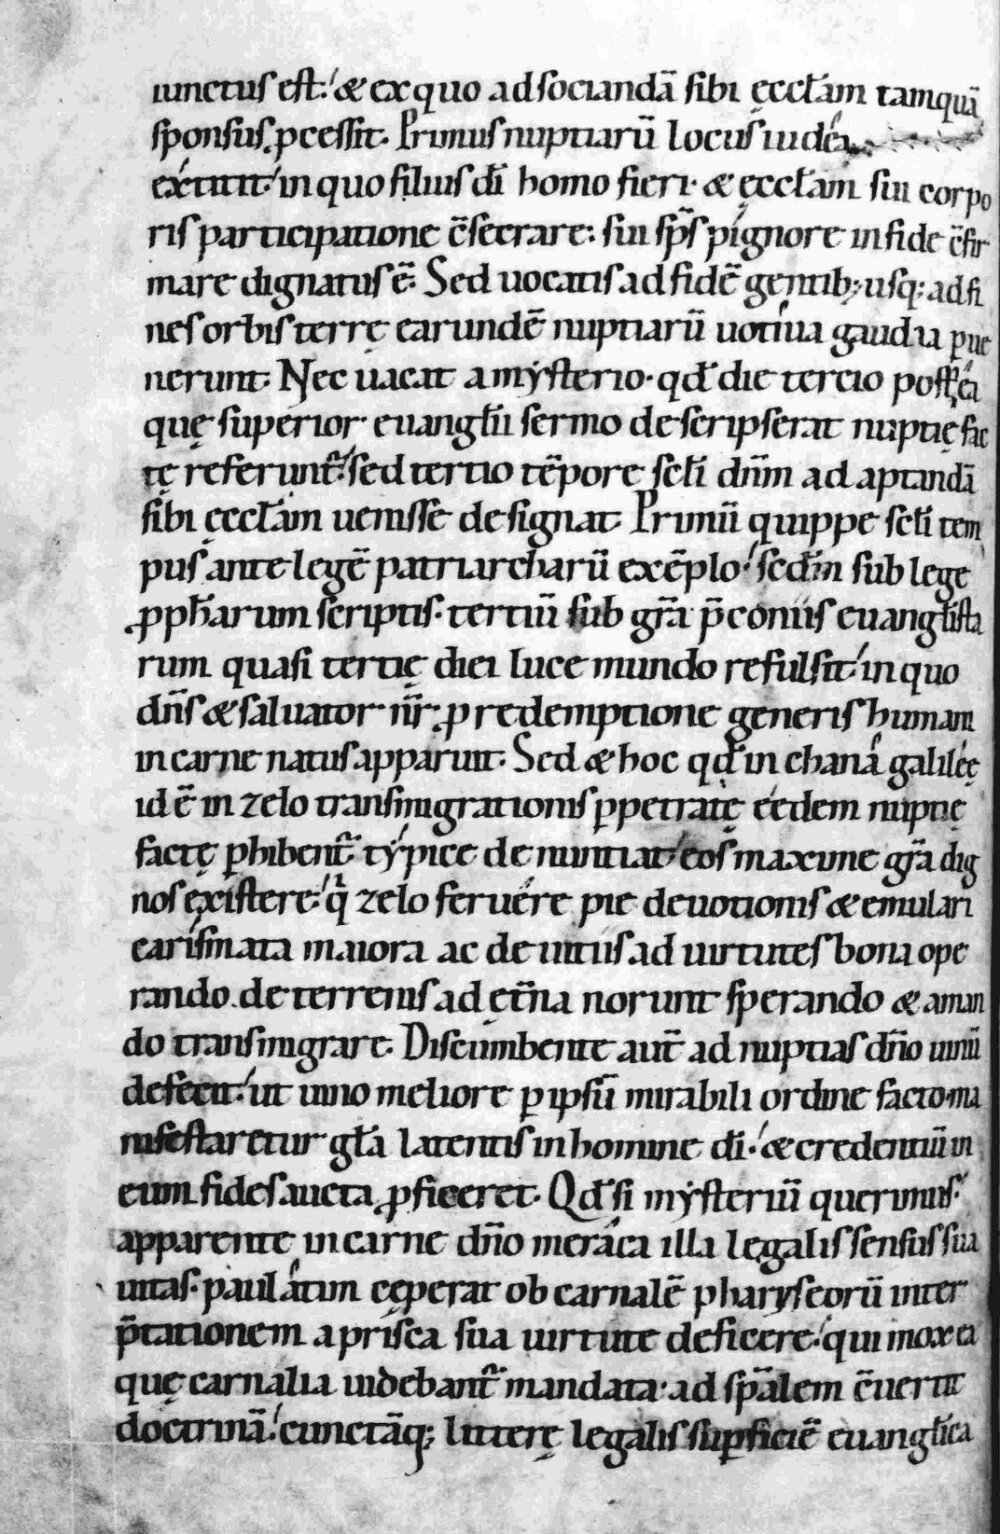 iunctus est. & ex quo ad sociandā sibi ęccl̄am tamquā
sponsus ꝓcessit. Primus nuptiarū locus iudęa
extitit. in quo filius dī homo fieri. & ęccl̄am sui corpo
ris participatione c̄secrare. sui sp̄s pignore in fide c̄fir
mare dignatus ē. Sed uocatis ad fidē gentib; usq; ad fi
nes orbis terrę earundē nuptiarū uotiua gaudia ꝑue
nerunt. Nec uacat a mẏsterio. qd̄ die tercio post ea
quę superior euangl̄ii sermo descripserat nuptię fac
tę referunt̄. sed tertio tēpore scl̄i dn̄m ad aptandā
sibi ęccl̄am uenisse designat. Primū quippe scl̄i tem
pus ante legē patriarcharū exēplo. scd̄m sub lege
ꝓph̄arum scriptis. tertiū sub gr̄a p̄coniis euangl̄ista
rum quasi tertię diei luce mundo refulsit. in quo
dn̄s & saluator nr̄ ꝓ redemptione generis humani
in carne natus apparuit. Sed & hoc qd̄ in chana galileę
id ē in zelo transmigrationis ꝑpetratę eedem nuptię
factę ꝑhibent̄ tẏpice denuntiat eos maxime gr̄a dig
nos existere. qi zelo feruere pie deuotionis & emulari
carismata maiora ac de uitiis ad uirtutes bona ope
rando. de terrenis ad ęt̄na norunt sperando & aman
do transmigrare. Discumbente aut̄ ad nuptias dn̄o uinū
defecit. ut uino meliore ꝑ ipsū mirabili ordine facto ma
nifestaretur gl̄a latentis in homine dī. & credentiū in
eum fides aucta ꝓficeret. Qd̄ si mẏsteriū querimus.
apparente in carne dn̄o meraca illa legalis sensus sua
uitas. paulatim cęperat ob carnalē pharẏseorū inter
p̄tationem a prisca sua uirtute deficere. qui mox ea
quę carnalia uidebant̄ mandata. ad sp̄alem c̄uertit
doctrinā. cunctāq; litterę legalis suꝑficiē euangl̄ica